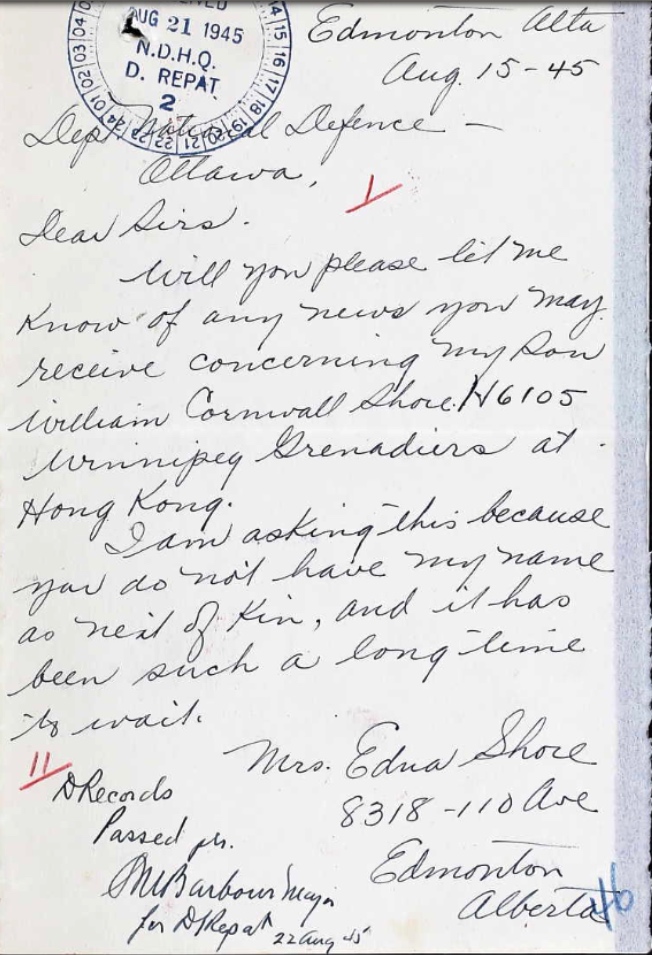 AUG 21 1945
N.D.H.Q.
D. REPAT
2
Edmonton Alta
Aug. 15-45
Dept National Defence —
Ottawa,
I
Dear Sirs.
Will you please let me
know of any news you may
receive concerning my son
William Cornwall Shore. H6105
Winnipeg Grenadiers at
Hong Kong.
I am asking this because
you do not have my name
as next of kin, and it has
been such a long time
to wait.
II
Mrs. Edna Shore
8318-110 Ave
Edmonton
Alberta
D Records
Passed pls.
Barbour Major
for D/Repat 22 Aug 45